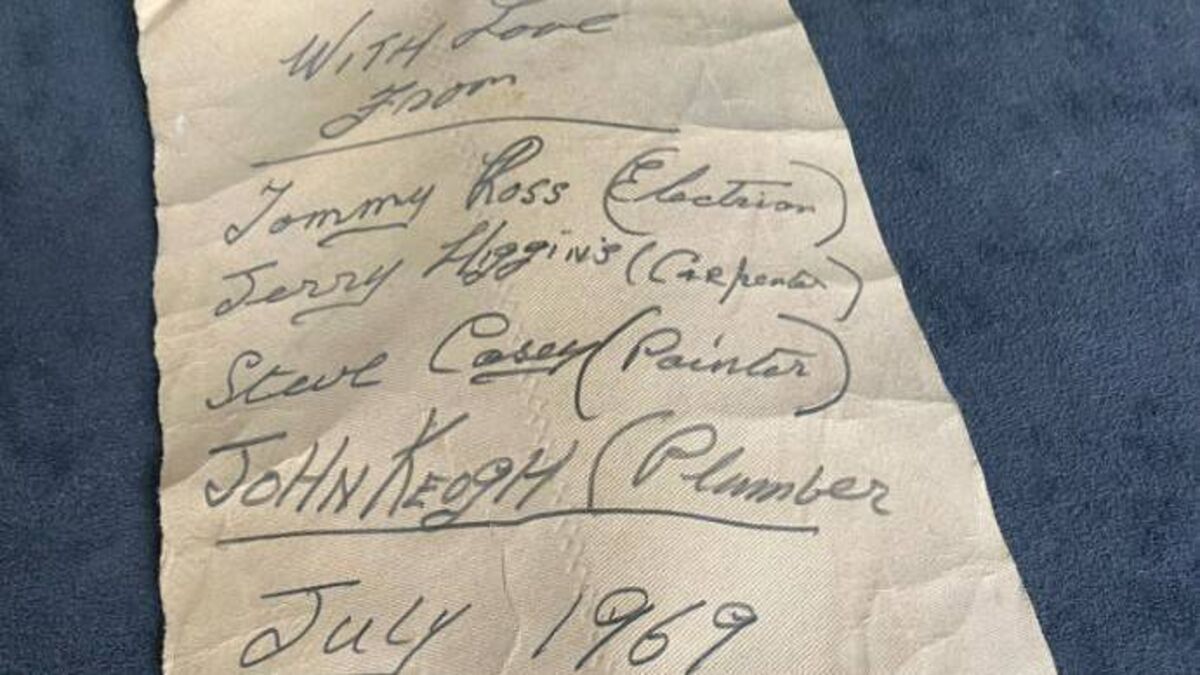 WITH Love
From
Tommy Ross (Electrion)
Jerry Higgin's (Carpenter)
Steve Casey (Painter)
JOHN KEOGH (Plumber
July 1969